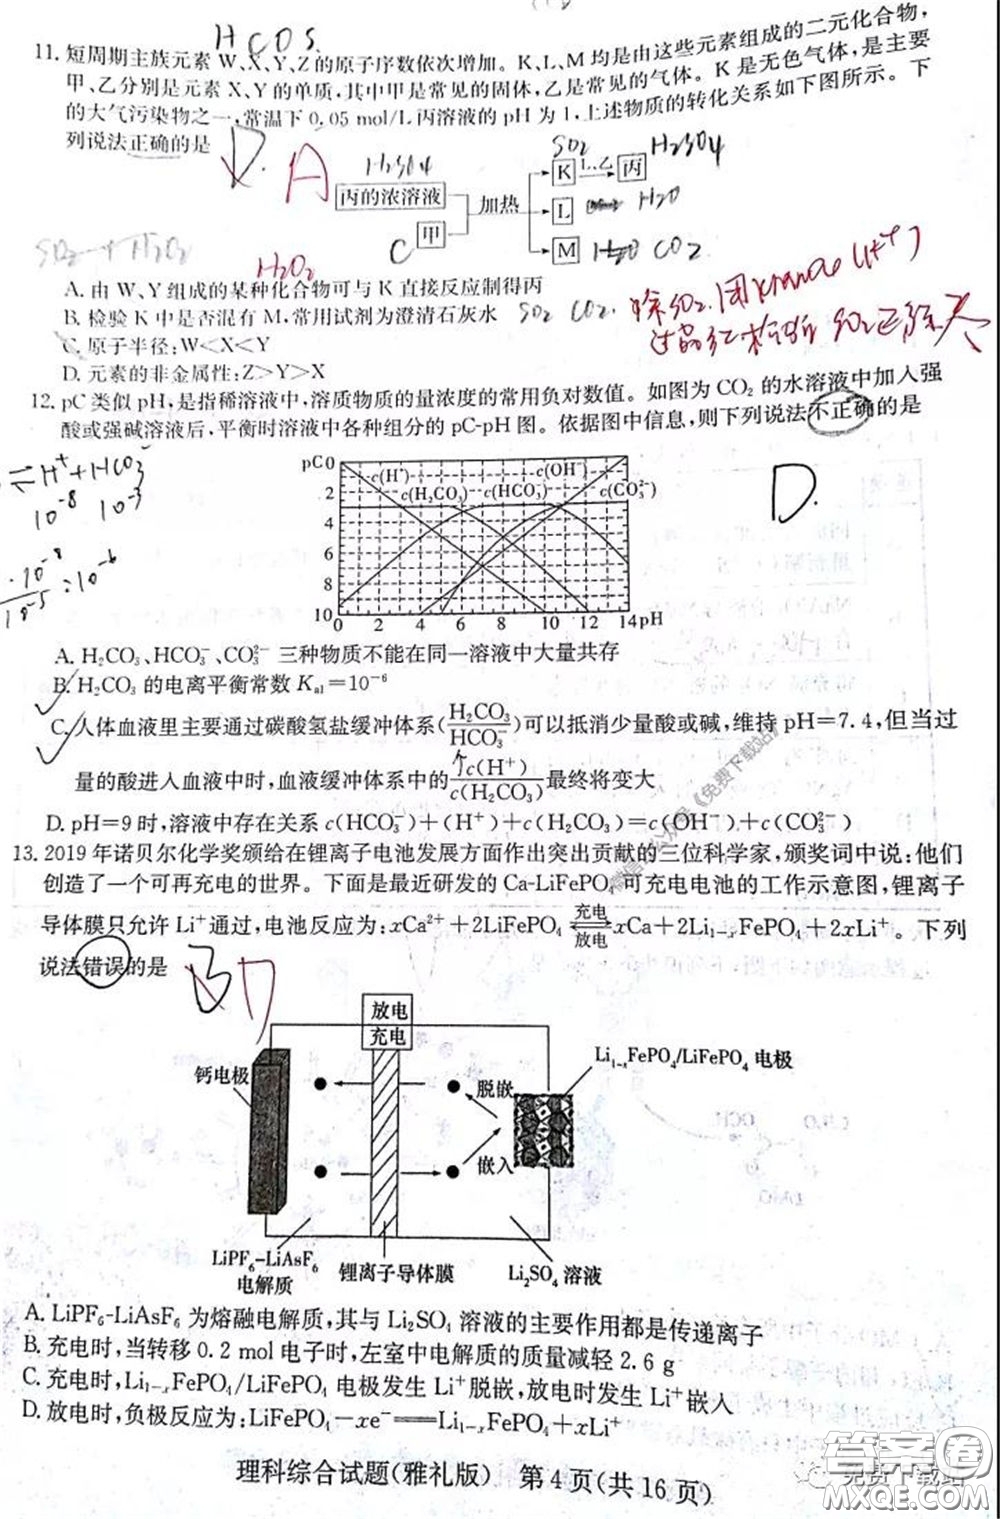 H C O S
11. 短周期主族元素 W、X、Y、Z的原子序数依次增加。K、L、M 均是由这些元素组成的二元化合物,
甲、乙分别是元素 X、Y 的单质,其中甲是常见的固体,乙是常见的气体。K 是无色气体,是主要
的大气污染物之一,常温下 0.05 mol/L 丙溶液的 pH 为 1,上述物质的转化关系如下图所示。下
列说法正确的是
D. A
H₂SO₄ SO₂ H₂SO₄
丙的浓溶液 加热 K 1..乙 丙
L H₂O
C 甲 M CO₂
SO₂ + H₂O₂
H₂O₂
A. 由 W、Y 组成的某种化合物可与 K 直接反应制得丙
B. 检验 K 中是否混有 M,常用试剂为澄清石灰水 SO₂ CO₂
C. 原子半径:W<X<Y
D. 元素的非金属性:Z>Y>X
12. pC 类似 pH,是指稀溶液中,溶质物质的量浓度的常用负对数值。如图为 CO₂ 的水溶液中加入强
酸或强碱溶液后,平衡时溶液中各种组分的 pC-pH 图。依据图中信息,则下列说法不正确的是
⇌H⁺+HCO₃⁻
10⁻⁸ 10⁻³
D.
pC 0 2 4 6 8 10
c(H⁺) c(OH⁻)
c(H₂CO₃) c(HCO₃⁻) c(CO₃²⁻)
0 2 4 6 8 10 12 14 pH
A. H₂CO₃、HCO₃⁻、CO₃²⁻ 三种物质不能在同一溶液中大量共存
B. H₂CO₃ 的电离平衡常数 Kₐ₁=10⁻⁶
C. 人体血液里主要通过碳酸氢盐缓冲体系(H₂CO₃/HCO₃⁻)可以抵消少量酸或碱,维持 pH=7.4,但当过
量的酸进入血液中时,血液缓冲体系中的c(H⁺)/c(H₂CO₃)最终将变大
D. pH=9 时,溶液中存在关系 c(HCO₃⁻)+(H⁺)+c(H₂CO₃)=c(OH⁻)+c(CO₃²⁻)
13. 2019 年诺贝尔化学奖颁给在锂离子电池发展方面作出突出贡献的三位科学家,颁奖词中说:他们
创造了一个可再充电的世界。下面是最近研发的 Ca-LiFePO₄ 可充电电池的工作示意图,锂离子
导体膜只允许 Li⁺ 通过,电池反应为:xCa²⁺+2LiFePO₄ ⇌(充电/放电) xCa+2Li₁₋ₓFePO₄+2xLi⁺。下列
说法错误的是
放电
充电
钙电极
脱嵌
嵌入
Li₁₋ₓFePO₄/LiFePO₄ 电极
LiPF₆-LiAsF₆
电解质
锂离子导体膜
Li₂SO₄ 溶液
A. LiPF₆-LiAsF₆ 为熔融电解质,其与 Li₂SO₄ 溶液的主要作用都是传递离子
B. 充电时,当转移 0.2 mol 电子时,左室中电解质的质量减轻 2.6 g
C. 充电时,Li₁₋ₓFePO₄/LiFePO₄ 电极发生 Li⁺ 脱嵌,放电时发生 Li⁺ 嵌入
D. 放电时,负极反应为:LiFePO₄−xe⁻══Li₁₋ₓFePO₄+xLi⁺
理科综合试题(雅礼版) 第 4 页(共 16 页)
答案圈
MXQE.COM